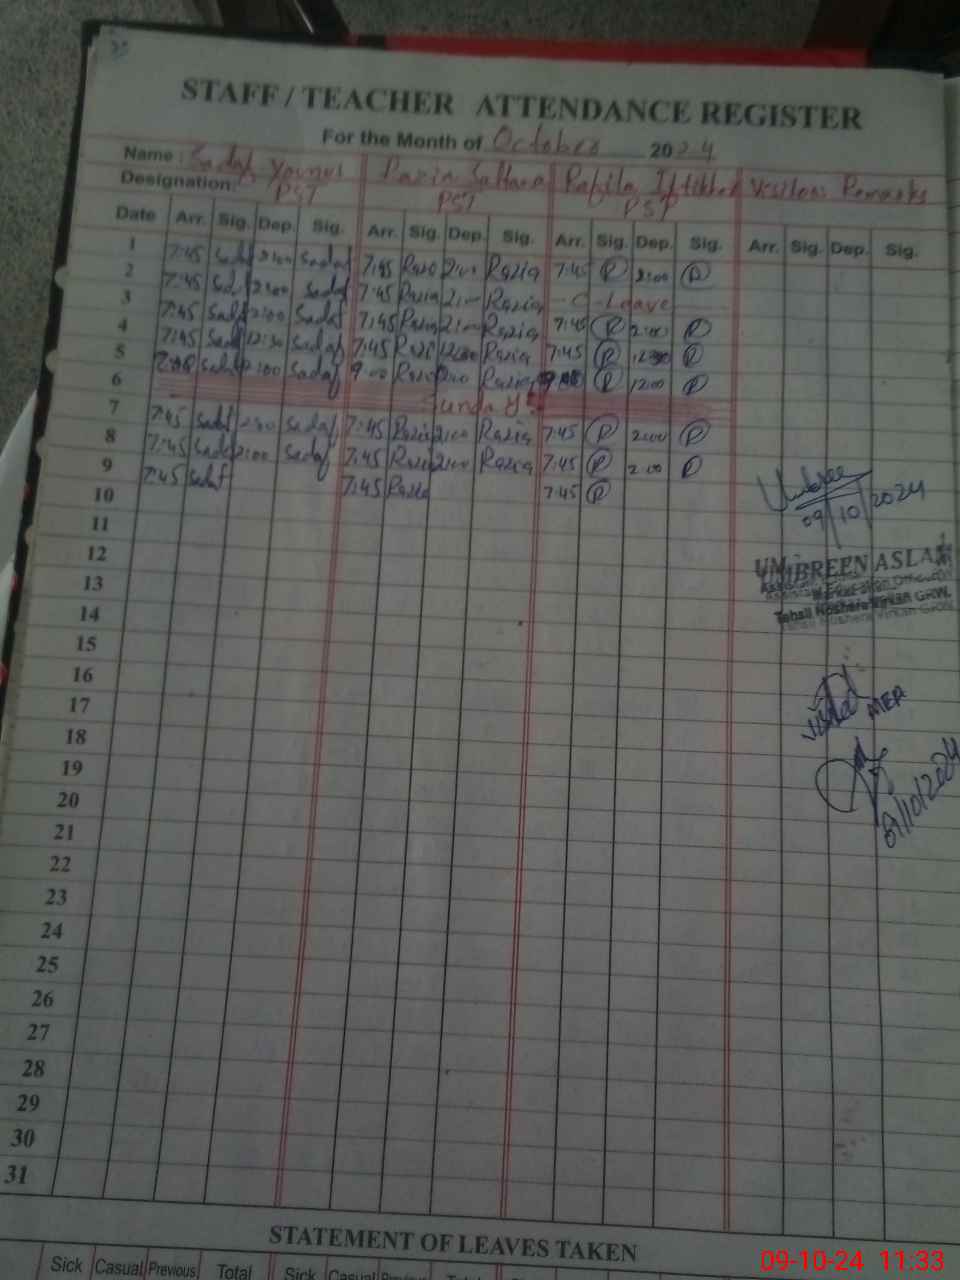 STAFF / TEACHER ATTENDANCE REGISTER
For the Month of October 2024
Name: Sadaf Younus Razia Sultana Rafila Iftikhar Visitors Remarks
Designation: PST PST PST
Date Arr. Sig. Dep. Sig. Arr. Sig. Dep. Sig. Arr. Sig. Dep. Sig. Arr. Sig. Dep. Sig.
1 7:45 Sadaf 2:00 Sadaf 7:45 Razia 2:00 Razia 7:45 R 2:00 R
2 7:45 Sadaf 2:00 Sadaf 7:45 Razia 2:00 Razia C-Leave
3 7:45 Sadaf 2:00 Sadaf 7:45 Razia 2:00 Razia 7:45 R 2:00 R
4 7:45 Sadaf 12:30 Sadaf 7:45 Razia 12:30 Razia 7:45 R 12:30 R
5 Sadaf 12:00 Sadaf 9:00 Razia Razia R 12:00 R
6 Sunday
7 7:45 Sadaf 2:00 Sadaf 7:45 Razia 2:00 Razia 7:45 R 2:00 R
8 7:45 Sadaf 2:00 Sadaf 7:45 Razia 2:00 Razia 7:45 R 2:00 R
9 7:45 Sadaf 7:45 Razia 7:45 R
10
Umbreen
09/10/2024
11
12
UMBREEN ASLAM
13
Tehsil Noshera Virkan GRW.
14
15
16
17
Visited MEA
18
19
20
9/10/2024
21
22
23
24
25
26
27
28
29
30
31
STATEMENT OF LEAVES TAKEN
Sick Casual Previous Total Sick Casual
09-10-24 11:33